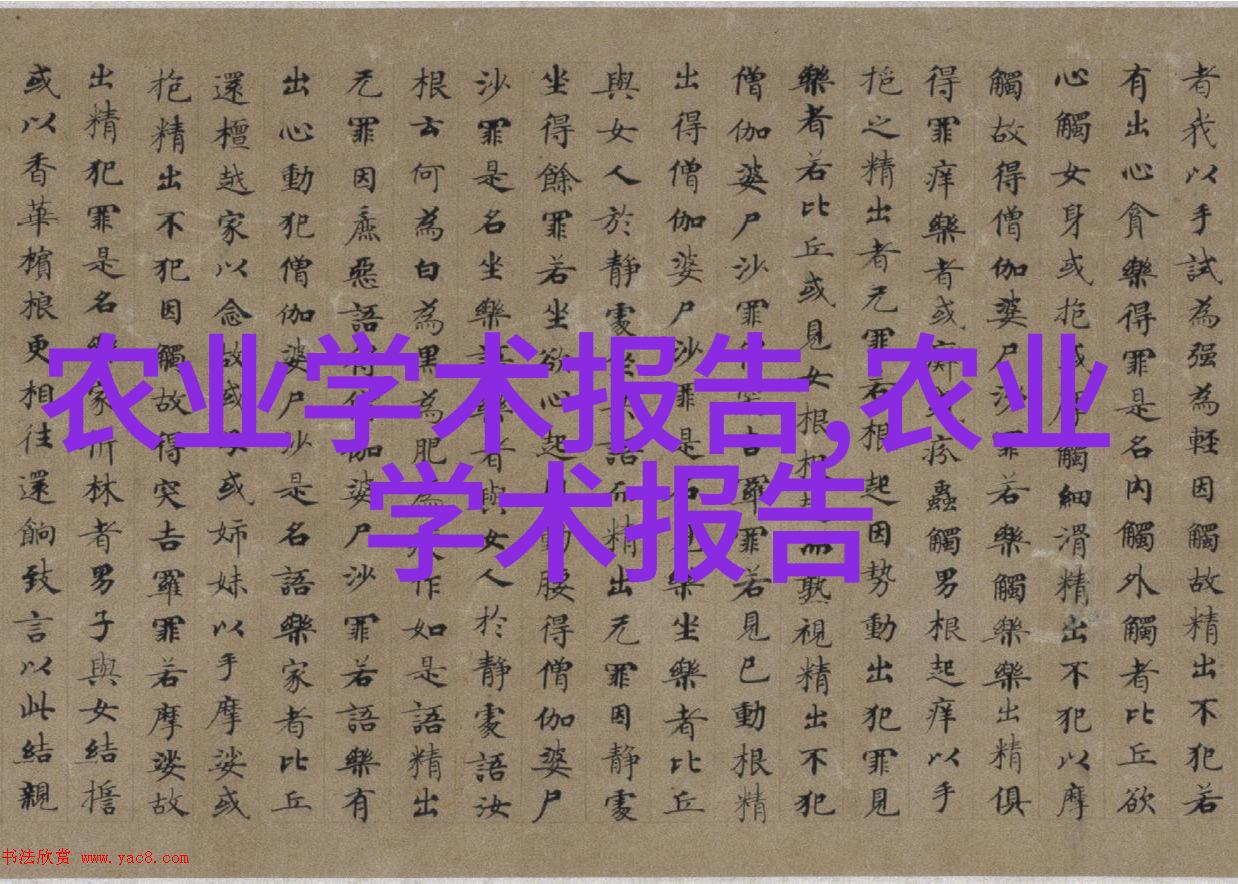 农业学术报告,农业
学术报告
者我以手試為强為輕因觸故精出不犯若
有出心貪樂得罪是名内觸外觸者比丘欲
心觸女身或抱或摩觸細滑精出不犯以摩
觸故得僧伽婆尸沙罪若樂觸樂樂出精俱
得罪痒樂者或癬疥蟲觸男根起痒以手
抱之精出者无罪若根起因勢動出犯罪見
樂者若比丘或見女根根熟視精出不犯
僧伽婆尸沙罪吉羅罪若見已動根精
出得僧伽婆尸沙罪是名見樂坐樂者比丘
與女人於靜處坐共語而精出无罪因靜處
坐得餘罪若坐欲心起動腰得僧伽婆尸
沙罪是名坐樂語樂者與女人於静處語汝
根云何為白為黑為肥為作如是語精出
无罪因麁惡語得僧伽婆尸沙罪若語樂有
出心動犯僧伽婆尸沙是名語樂家者比丘
還檀越家以念故或或姉妹以手摩娑或
抱精出不犯因觸故得突吉羅罪若摩娑故
出精犯罪是名樂家折林者男子與女結誓
或以香華檳榔更相往還餉致言以此結親
书法欣赏 www.yac8.com